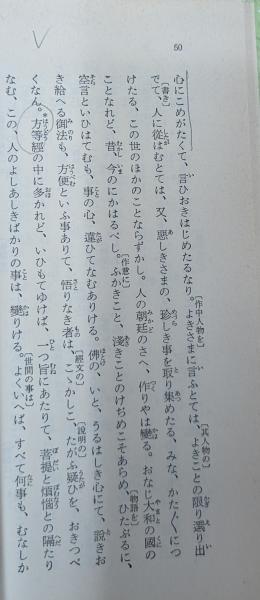 50
心にこめがたくて、言ひおきはじめたるなり。[作中人物を]よきさまに言ふとては、[其人物の]よきことの限り選り出
[書き]でて、人に從はむとては、又、惡しきさまの、珍しき事を取り集めたる、みな、かた〴〵につ
けたる、この世のほかのことならずかし。人の朝廷のさへ、作りやは變る。おなじ大和の國の
ことなれど、昔、今のにかはるべし。[作意に]ふかきこと、淺きことのけぢめこそあらめ、[物語を]ひたぶるに、
空言といひはてむも、事の心、違ひてなむありける。佛の、いと、うるはしき心にて、說きお
き給へる御法も、方便といふ事ありて、悟りなき者は、[經文の]こゝかしこ、[說明の]たがふ疑ひを、おきつべ
くなん。*方等經の中に多かれど、いひもてゆけば、一つ旨にあたりて、菩提と煩惱との隔たり
なむ、この、人のよしあしきばかりの事は、變りける。よくいへば、[世間の事は]すべて何事も、むなしか